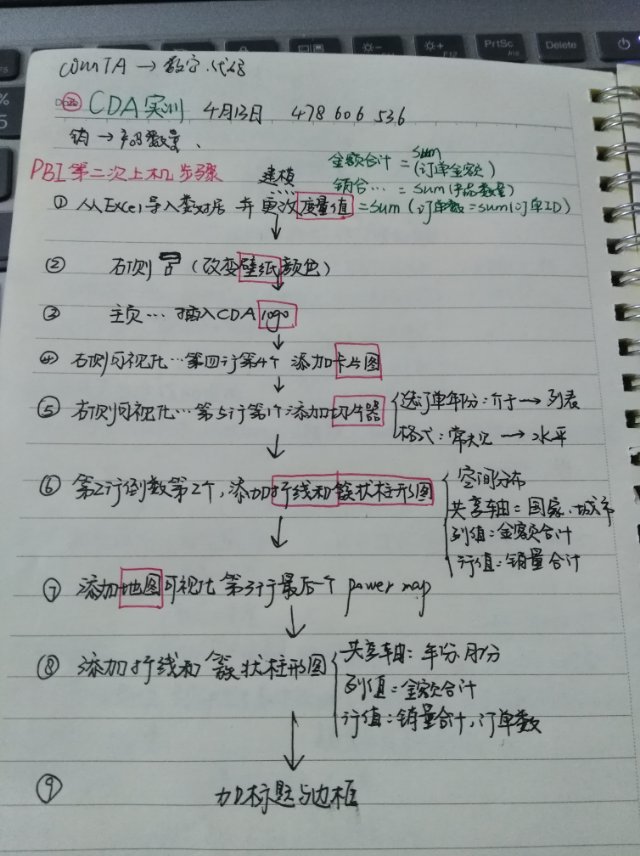 COMTA → 数字.代码
CDA实训 4月13日 478 606 536
销 → 产品数量、
PBI第二次上机步骤 建模
金额合计 = sum(订单金额)
销合… = sum(产品数量)
① 从Excel导入数据 并更改度量值 = sum (订单数 = sum(订单ID)
② 右侧 (改变壁纸颜色)
③ 主页… 插入CDA logo
④ 右侧可视化…第四行第4个 添加卡片图
⑤ 右侧可视化…第5行第1个 添加切片器
选订单年份:介于 → 列表
格式:常规 → 水平
⑥ 第2行倒数第2个,添加折线和簇状柱形图
空间分布
共享轴=国家.城市
列值=金额合计
行值:销量合计
⑦ 添加地图可视化 第3行最后一个 power map
⑧ 添加折线和簇状柱形图
共享轴:年份.月份
列值=金额合计
行值:销量合计,订单数
⑨ 加标题与边框
PrtSc
Delete
F12
5
%